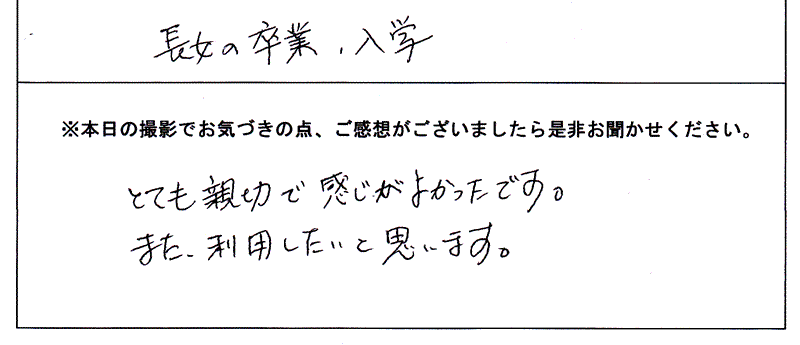 長女の卒業、入学
※本日の撮影でお気づきの点、ご感想がございましたら是非お聞かせください。
とても親切で感じがよかったです。
また、利用したいと思います。